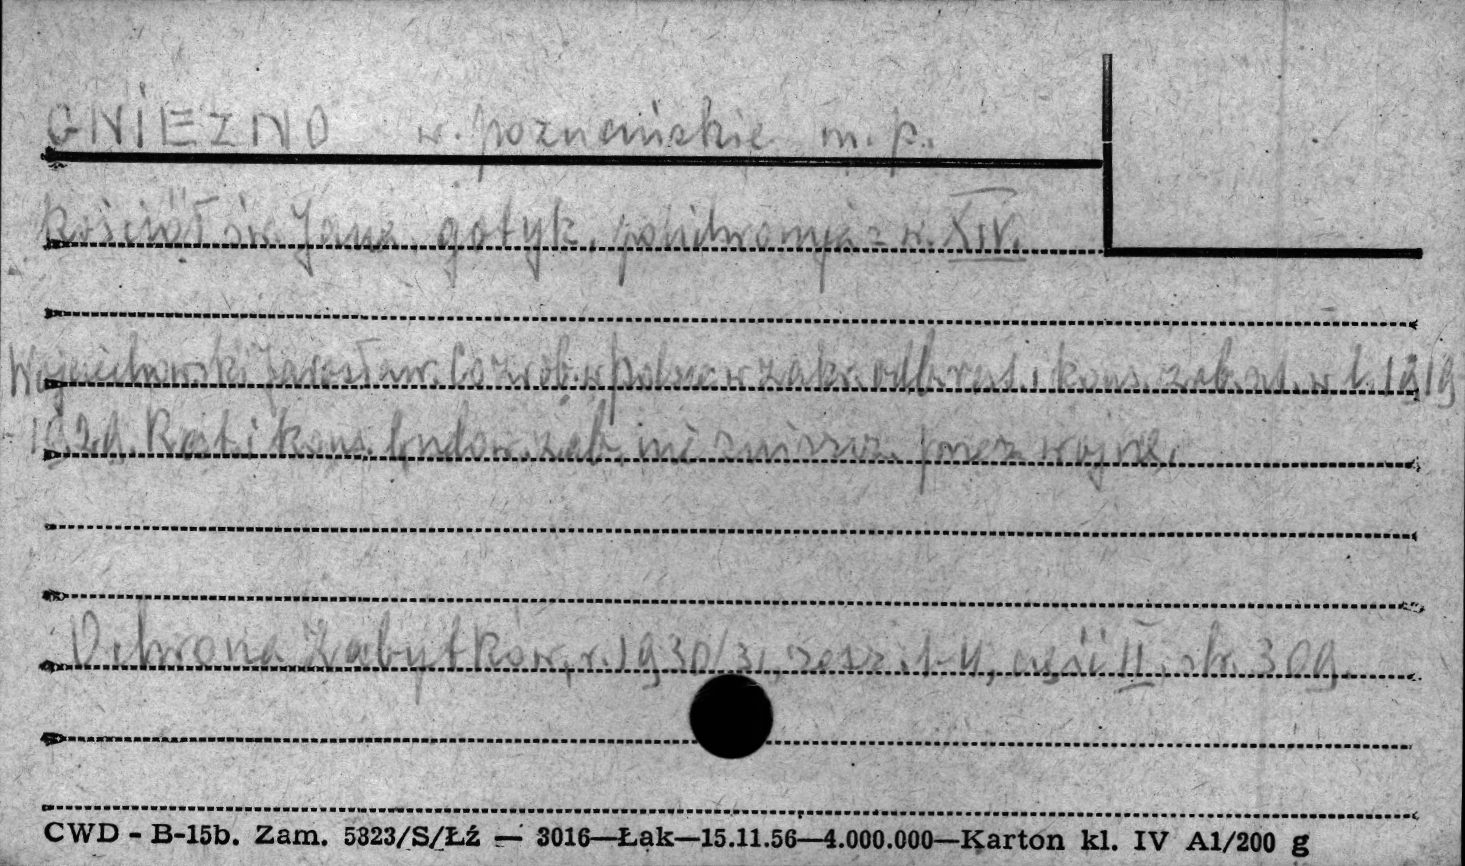 GNIEZNO w. poznańskie m. p.
Kościół św. Jana, gotyk, polichromja z w. XIV.
Wojciechowski Jarosław. Co zrob. w Polsce w zakr. odb. rest. i kons. zab. szt. w l. 1919
- 1929. Rest. i kons. budow. zab. nie zniszcz. przez wojnę,
Ochrona Zabytków, r. 1930/31, zesz. 1-4, część II, str. 309.
CWD - B-15b. Zam. 5323/S/Łź — 3016—Łak—15.11.56—4.000.000—Karton kl. IV A1/200 g